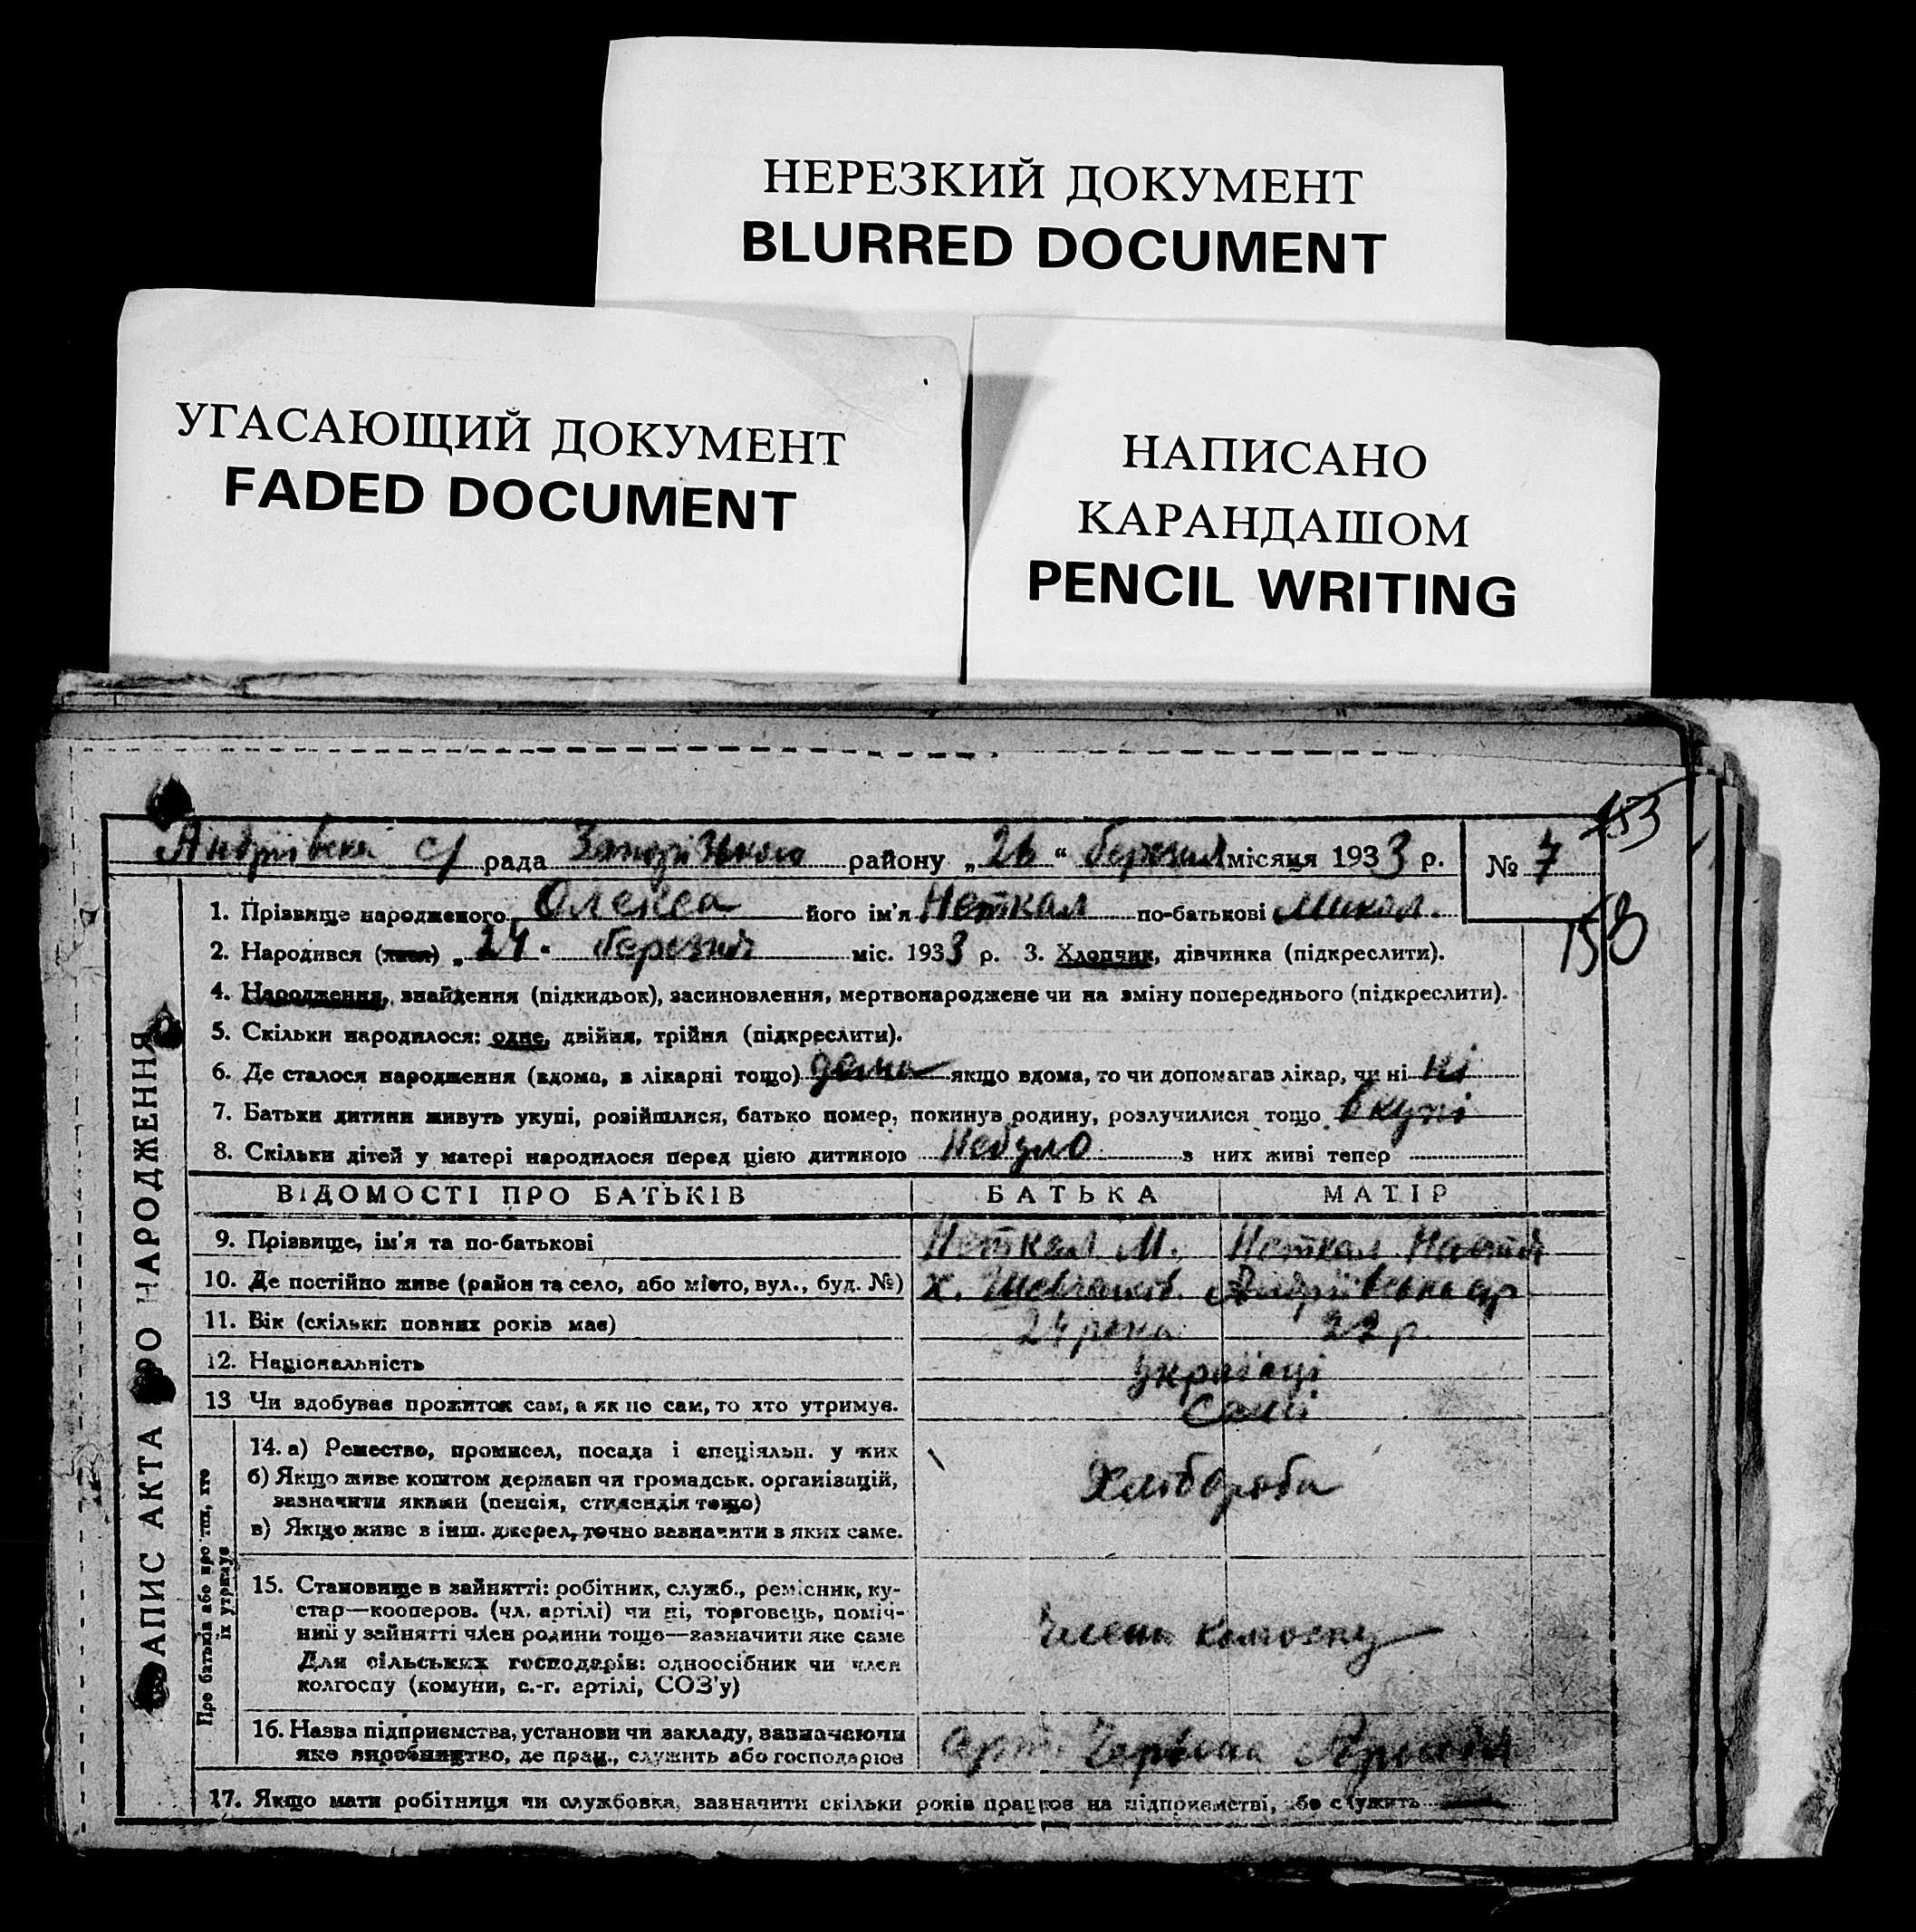 НЕРЕЗКИЙ ДОКУМЕНТ
BLURRED DOCUMENT
УГАСАЮЩИЙ ДОКУМЕНТ
FADED DOCUMENT
НАПИСАНО
КАРАНДАШОМ
PENCIL WRITING
153
Андріївська с/ рада Запорізького району „26“ березня місяця 1933 р.
№ 7
158
1. Прізвище народженого Олекса його ім'я Неткал по-батькові Микол.
2. Народився (лася) „24“ березня міс. 1933 р. 3. Хлопчик, дівчинка (підкреслити).
4. Народження, знайдення (підкидьок), засиновлення, мертвонароджене чи на зміну попереднього (підкреслити).
5. Скільки народилося: одне, двійня, трійня (підкреслити).
6. Де сталося народження (вдома, в лікарні тощо) дома якщо вдома, то чи допомагав лікар, чи ні ні
7. Батьки дитини живуть укупі, розійшлися, батько помер, покинув родину, розлучилися тощо вкупі
8. Скільки дітей у матері народилося перед цією дитиною Небуло з них живі тепер
ВІДОМОСТІ ПРО БАТЬКІВ БАТЬКА МАТІР
9. Прізвище, ім'я та по-батькові Неткал М. Неткал Настя
10. Де постійно живе (район та село, або місто, вул., буд. №) х. Шевченків. Андріївська ср
11. Вік (скільки повних років має) 24 рока 22 р.
12. Національність Українці
13 Чи здобуває прожиток сам, а як не сам, то хто утримує. Самі
14. а) Ремество, промисел, посада і спеціяльн. у них
б) Якщо живе коштом держави чи громадськ. організацій,
зазначити якими (пенсія, стипендія тощо)
Хлібороби
в) Якщо живе з інш. джерел, точно зазначити з яких саме.
15. Становище в зайнятті: робітник, служб., ремісник, ку-
стар—кооперов. (чл. артілі) чи ні, торговець, поміч-
ний у зайнятті член родини тощо—зазначити яке саме
Члени колгоспу
Для сільських господарів: одноосібник чи член
колгоспу (комуни, с.-г. артілі, СОЗ'у)
16. Назва підприємства, установи чи закладу, зазначаючи
яке виробництво, де прац., служить або господарює
Арт. Червона
17. Якщо мати робітниця чи службовка, зазначити скільки років працює на підприємстві, або служить
ЗАПИС АКТА ПРО НАРОДЖЕННЯ
Про батьків або про тих, хто
їх утримує